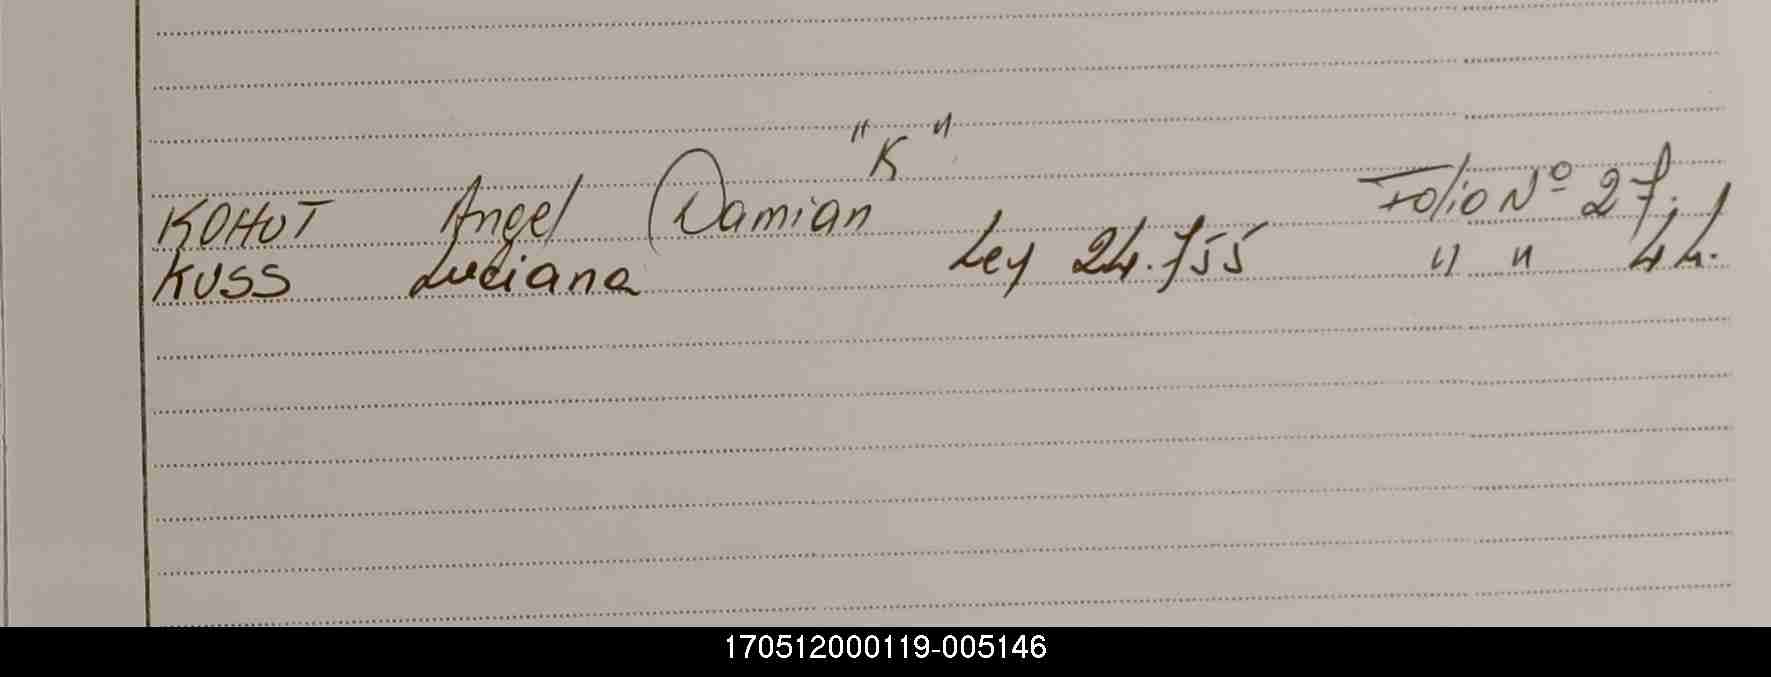 "K"
KOHUT Angel Damian Folio Nº 27.
KUSS Luciana Ley 24.755 " " 44.
170512000119-005146